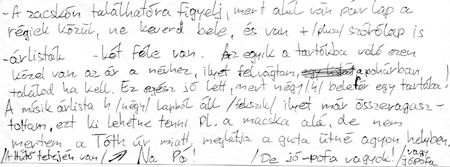 - A zacskón találhatóra figyelj, mert alul van pár lap a
régiek közül, ne keverd bele, és van + /plusz/ szórólap is
- árlisták - két féle van. Az egyik a tartókba való ezen
közel van az ár a névhez, ilyet felvágtam, a pohárban
találod ha kell. Ez egész jó lett, mert négy/4/ belefér egy tartóba!
A másik árlista 4/négy/ lapból áll /tetszik/ ilyet már összeragasz-
tottam, ezt ki lehetne tenni pl. a macska alá, de nem
mertem a Tóth úr miatt, megüti a guta ütné agyon helyben.
/A hűtő tetején van/ Na Pá! /De jó-pofa vagyok!/ vagy
tópofa